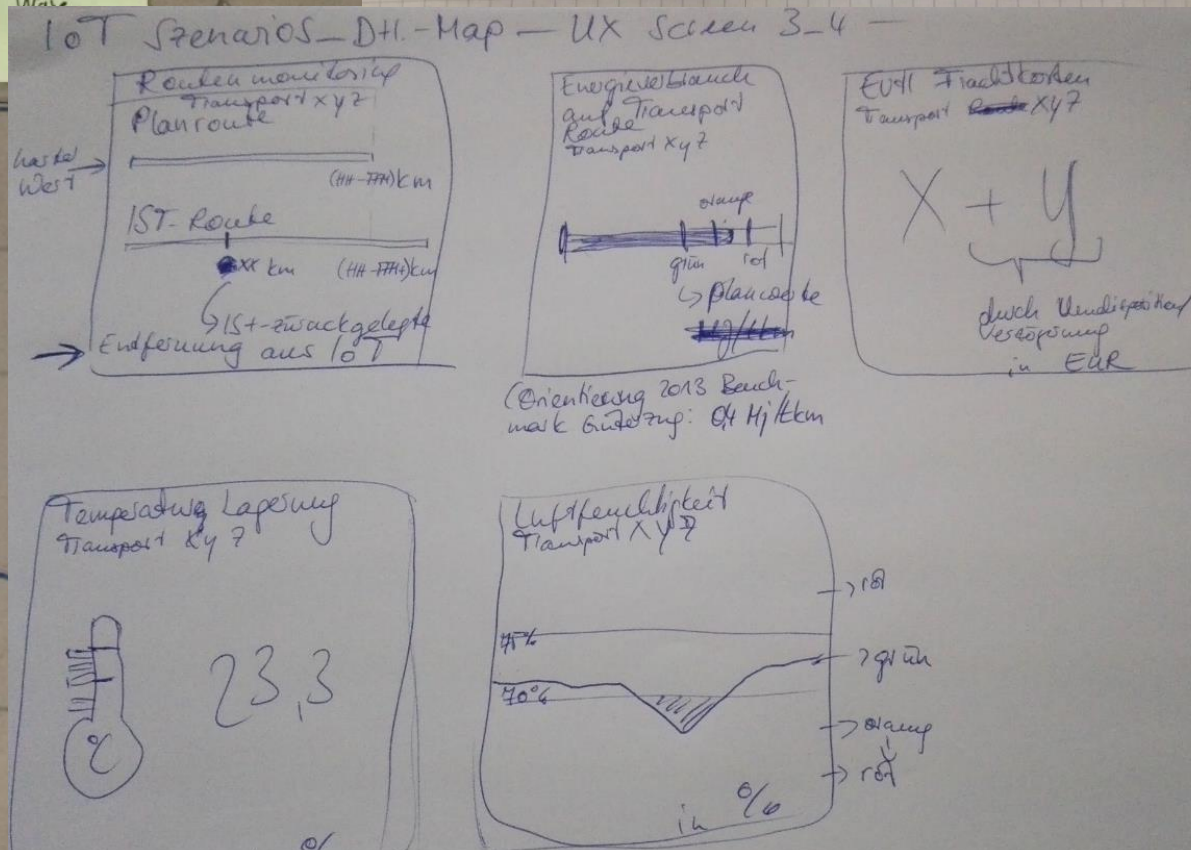 IoT Szenarios_DH.-Map — UX Screen 3_4 —
Routenmonitoring
Transport xyz
Planroute
Wert
(HH-HH)km
IST-Route
xx km
(HH-HH)km
IST-zurückgelegte
Entfernung aus IoT
Energieverbrauch
auf Transport
Route
Transport xyz
orange
grün
rot
Planwerte
(Orientierung 2013 Bench-
mark Güterzug: 0,4 Mj/tkm
Evtl Frachtkosten
Transport XyZ
X + Y
durch Umdisposition/
Verzögerung
in EUR
Temperatur Lagerung
Transport XyZ
°C
23,3
Luftfeuchtigkeit
Transport XyZ
rot
75%
grün
70%
orange
rot
in %